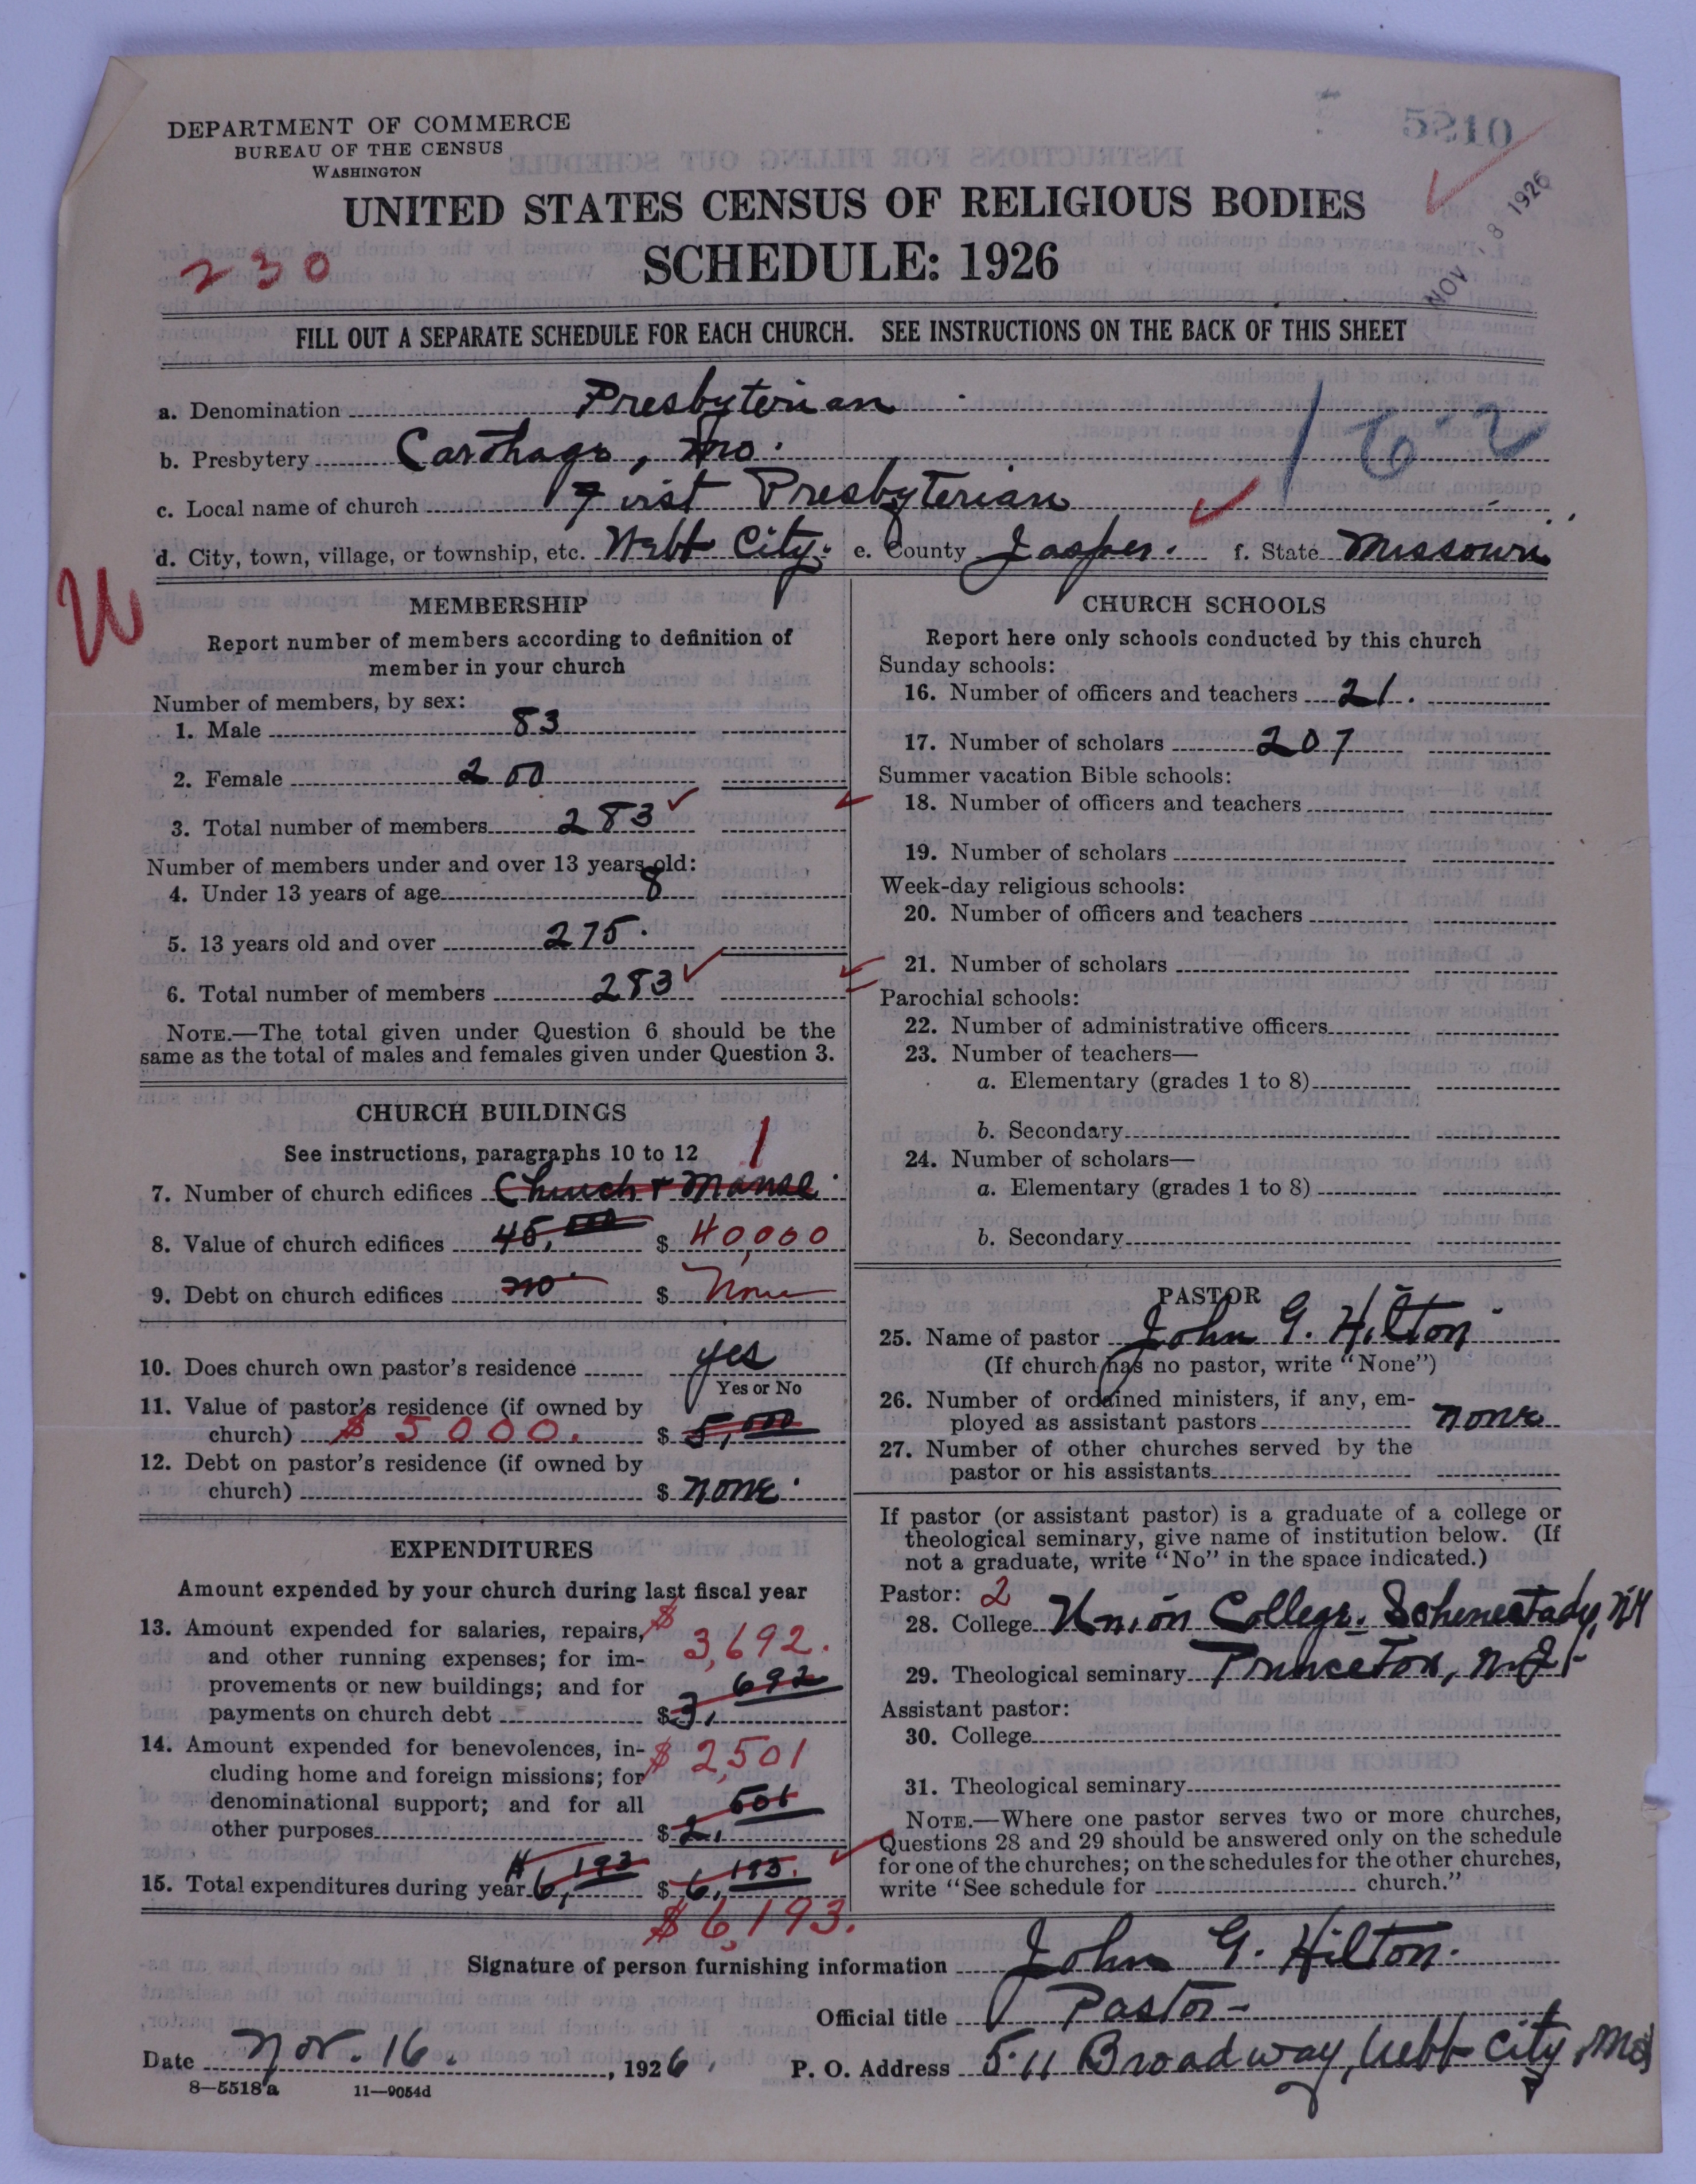 5210
DEPARTMENT OF COMMERCE
BUREAU OF THE CENSUS
WASHINGTON
UNITED STATES CENSUS OF RELIGIOUS BODIES
SCHEDULE: 1926
230
NOV 8 1926
FILL OUT A SEPARATE SCHEDULE FOR EACH CHURCH. SEE INSTRUCTIONS ON THE BACK OF THIS SHEET
a. Denomination Presbyterian
162
b. Presbytery Carthage, Mo.
c. Local name of church First Presbyterian
d. City, town, village, or township, etc. Webb City. e. County Jasper. f. State Missouri
W
MEMBERSHIP
Report number of members according to definition of
member in your church
Number of members, by sex:
1. Male 83
2. Female 200
3. Total number of members 283
Number of members under and over 13 years old:
4. Under 13 years of age 8
5. 13 years old and over 275.
6. Total number of members 283
NOTE.—The total given under Question 6 should be the
same as the total of males and females given under Question 3.
CHURCH BUILDINGS
See instructions, paragraphs 10 to 12 1
7. Number of church edifices Church + Manse.
8. Value of church edifices 45,000 $ 40,000
9. Debt on church edifices no $ None
10. Does church own pastor's residence yes
Yes or No
11. Value of pastor's residence (if owned by
church) $ 5000. $ 5,000
12. Debt on pastor's residence (if owned by
church) $ none.
EXPENDITURES
Amount expended by your church during last fiscal year
13. Amount expended for salaries, repairs, $
and other running expenses; for im- 3,692.
provements or new buildings; and for
payments on church debt $ 3,692
14. Amount expended for benevolences, in- $ 2,501
cluding home and foreign missions; for
denominational support; and for all
other purposes $ 2,501
15. Total expenditures during year $6,193 $ 6,193.
$ 6,193.
CHURCH SCHOOLS
Report here only schools conducted by this church
Sunday schools:
16. Number of officers and teachers 21.
17. Number of scholars 207
Summer vacation Bible schools:
18. Number of officers and teachers
19. Number of scholars
Week-day religious schools:
20. Number of officers and teachers
21. Number of scholars
Parochial schools:
22. Number of administrative officers
23. Number of teachers—
a. Elementary (grades 1 to 8)
b. Secondary
24. Number of scholars—
a. Elementary (grades 1 to 8)
b. Secondary
PASTOR
25. Name of pastor John G. Hilton
(If church has no pastor, write "None")
26. Number of ordained ministers, if any, em-
ployed as assistant pastors none
27. Number of other churches served by the
pastor or his assistants
If pastor (or assistant pastor) is a graduate of a college or
theological seminary, give name of institution below. (If
not a graduate, write "No" in the space indicated.)
Pastor: 2
28. College Union College. Schenectady, NY
29. Theological seminary Princeton, N.J.
Assistant pastor:
30. College
31. Theological seminary
NOTE.—Where one pastor serves two or more churches,
Questions 28 and 29 should be answered only on the schedule
for one of the churches; on the schedules for the other churches,
write "See schedule for church."
Signature of person furnishing information John G. Hilton.
Official title Pastor-
Date Nov. 16. , 1926. P. O. Address 511 Broadway, Webb City, Mo
8—5518a 11—9054d